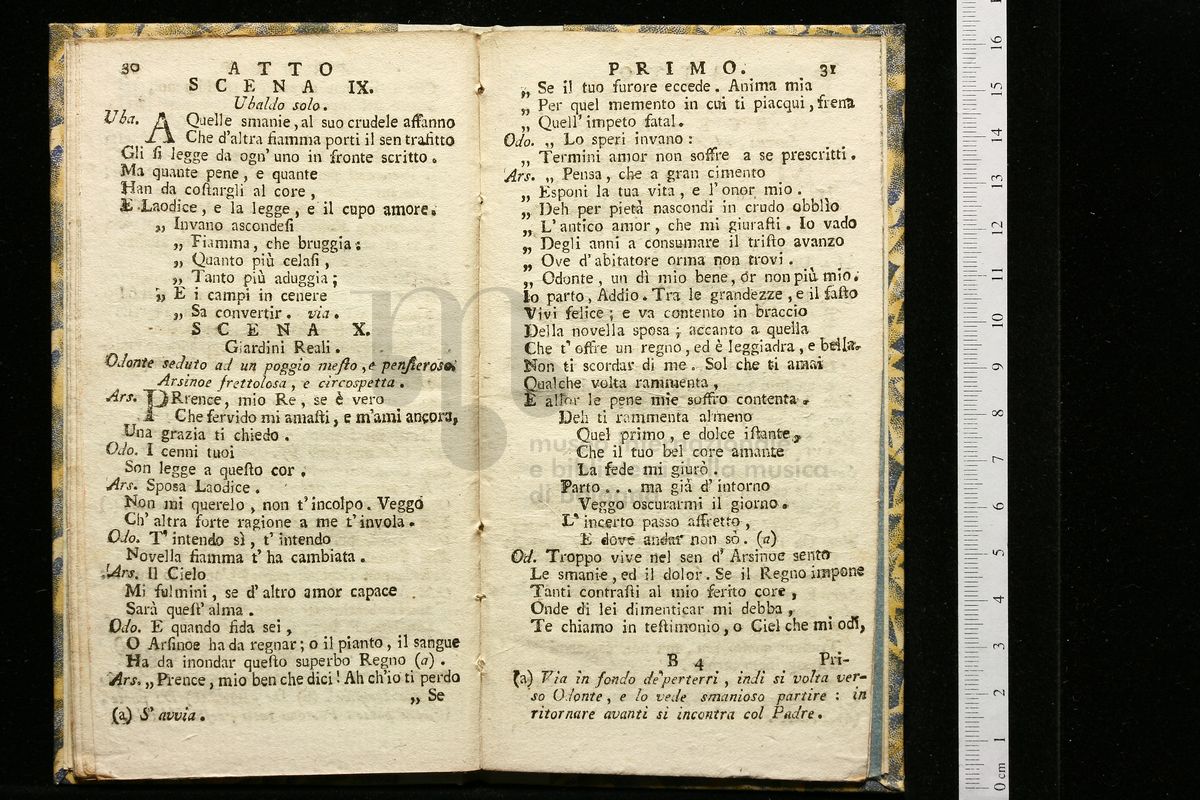 30 ATTO
SCENA IX.
Ubaldo solo.
Uba. A Quelle smanie, al suo crudele affanno
Che d'altra fiamma porti il sen trafitto
Gli si legge da ogn' uno in fronte scritto.
Ma quante pene, e quante
Han da costargli al core,
E Laodice, e la legge, e il cupo amore.
„ Invano ascondesi
„ Fiamma, che bruggia:
„ Quanto più celasi,
„ Tanto più aduggia;
„ E i campi in cenere
„ Sa convertir. via.
SCENA X.
Giardini Reali.
Odonte seduto ad un poggio mesto, e pensieroso.
Arsinoe frettolosa, e circospetta.
Ars. PRrence, mio Re, se è vero
Che fervido mi amasti, e m'ami ancora,
Una grazia ti chiedo.
Odo. I cenni tuoi
Son legge a questo cor.
Ars. Sposa Laodice.
Non mi querelo, non t'incolpo. Veggo
Ch' altra forte ragione a me t'invola.
Odo. T' intendo sì, t' intendo
Novella fiamma t' ha cambiata.
Ars. Il Cielo
Mi fulmini, se d' altro amor capace
Sarà quest' alma.
Odo. E quando fida sei,
O Arsinoe ha da regnar; o il pianto, il sangue
Ha da inondar questo superbo Regno (a).
Ars. „ Prence, mio ben che dici! Ah ch'io ti perdo
„ Se
(a) S' avvia.
PRIMO. 31
„ Se il tuo furore eccede. Anima mia
„ Per quel memento in cui ti piacqui, frena
„ Quell' impeto fatal.
Odo. „ Lo speri invano:
„ Termini amor non soffre a se prescritti.
Ars. „ Pensa, che a gran cimento
„ Esponi la tua vita, e l' onor mio.
„ Deh per pietà nascondi in crudo obblìo
„ L' antico amor, che mi giurasti. Io vado
„ Degli anni a consumare il tristo avanzo
„ Ove d' abitatore orma non trovi.
„ Odonte, un dì mio bene, or non più mio.
Io parto, Addio. Tra le grandezze, e il fasto
Vivi felice; e va contento in braccio
Della novella sposa; accanto a quella
Che t' offre un regno, ed è leggiadra, e bella.
Non ti scordar di me. Sol che ti amai
Qualche volta rammenta,
E allor le pene mie soffro contenta.
Deh ti rammenta almeno
Quel primo, e dolce istante,
Che il tuo bel core amante
La fede mi giurò.
Parto... ma già d' intorno
Veggo oscurarmi il giorno.
L' incerto passo affretto,
E dove andar non sò. (a)
Od. Troppo vive nel sen d' Arsinoe sento
Le smanie, ed il dolor. Se il Regno impone
Tanti contrasti al mio ferito core,
Onde di lei dimenticar mi debba,
Te chiamo in testimonio, o Ciel che mi odi,
B 4 Pri-
(a) Via in fondo de' perterri, indi si volta ver-
so Odonte, e lo vede smanioso partire: in
ritornare avanti si incontra col Padre.
museo internazionale
e biblioteca della musica
di Bologna
0 cm 1 2 3 4 5 6 7 8 9 10 11 12 13 14 15 16